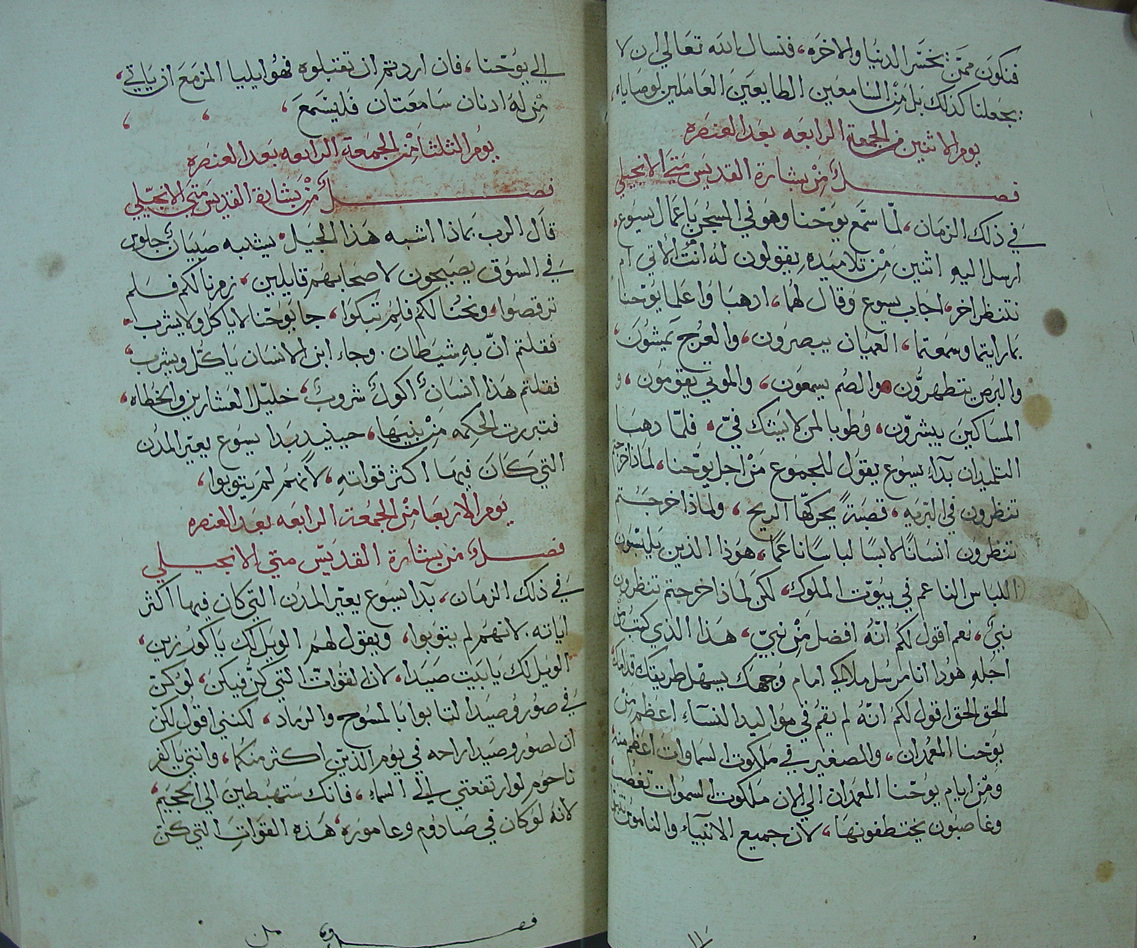 فنكون ممن يخسر الدنيا والاخره، فنسال الله تعالى ان لا
يجعلنا كذلك بل من السامعين الطايعين العاملين لوصاياه
يوم الاثنين من الجمعة الرابعه بعد العنصره
فصل من بشارة القديس متى الانجيلي
في ذلك الزمان، لما سمع يوحنا وهو في السجن باعمال يسوع،
ارسل اليه اثنين من تلاميذه يقولون له انت الاتي ام
ننتظر اخر، اجاب يسوع وقال لهما، اذهبا واعلما يوحنا
بما رايتما وسمعتما، العميان يبصرون، والعرج يمشون،
والبرص يتطهرون، والصم يسمعون، والموتى يقومون، و
المساكين يبشرون، وطوبا لمن لا يشك فيّ، فلما ذهبا
التلميذان بدا يسوع يقول للجموع من اجل يوحنا، لماذا خرجتم
تنظرون في البريه، قصبةً يحركها الريح، ولماذا خرجتم
تنظرون انسانًا لابسا لباسًا ناعمًا، هوذا الذين يلبسون
اللباس الناعم في بيوت الملوك، لكن لماذا خرجتم تنظرون
نبيّ، نعم اقول لكم انه افضل من نبيّ، هذا الذي كتب من
اجله هوذا انا مرسل ملاكي امام وجهك يسهل طريقك قدامك،
الحق الحق اقول لكم انه لم يقم في مواليد النساء اعظم من
يوحنا المعمدان، والصغير في ملكوت السماوات اعظم منه
ومن ايام يوحنا المعمدان الى الان ملكوت السموات تغصب
وغاصبون يختطفونها، لان جميع الانبياء والناموس
الي يوحنا، فان اردتم ان تقبلوه فهو ايليا المزمع ان ياتي،
من له اذنان سامعتان فليسمع،
يوم الثلثا من الجمعة الرابعه بعد العنصره
فصل من بشارة القديس متى الانجيلي
قال الرب بماذا اشبه هذا الجيل يشبه صبيان جلوس
في السوق يصيحون لاصحابهم قايلين، زمرنا لكم فلم
ترقصوا، ونحنا لكم فلم تبكوا، جا يوحنا لا ياكل ولا يشرب
فقلتم انّ به شيطان. وجاء ابن الانسان ياكل ويشرب
فقلتم هذا انسان اكول شروب خليل العشارين والخطاه،
فتبررت الحكمه من بنيها، حينيذ بدا يسوع يعير المدن
التي كان فيها اكثر قواته، لانهم لم يتوبوا،
يوم الاربعا من الجمعة الرابعه بعد العنصره
فصل من بشارة القديس متى الانجيلي
في ذلك الزمان، بدا يسوع يعير المدن التي كان فيها اكثر
اياته. لانهم لم يتوبوا، ويقول لهم الويل لك يا كورزين،
الويل لك يا بيت صيدا، لان لقوات التي كن فيكن، لو كن
في صور وصيدا لتابوا بالمسوح والرماد، لكنني اقول لكن
ان لصور وصيدا راحه في يوم الدين اكثر منكما، وانتي يا كفر
ناحوم لو ارتفعتي الى السماء، فانك ستهبطين الى الجحيم
لانه لو كان في صادوم وعاموره هذه القوات التي كن